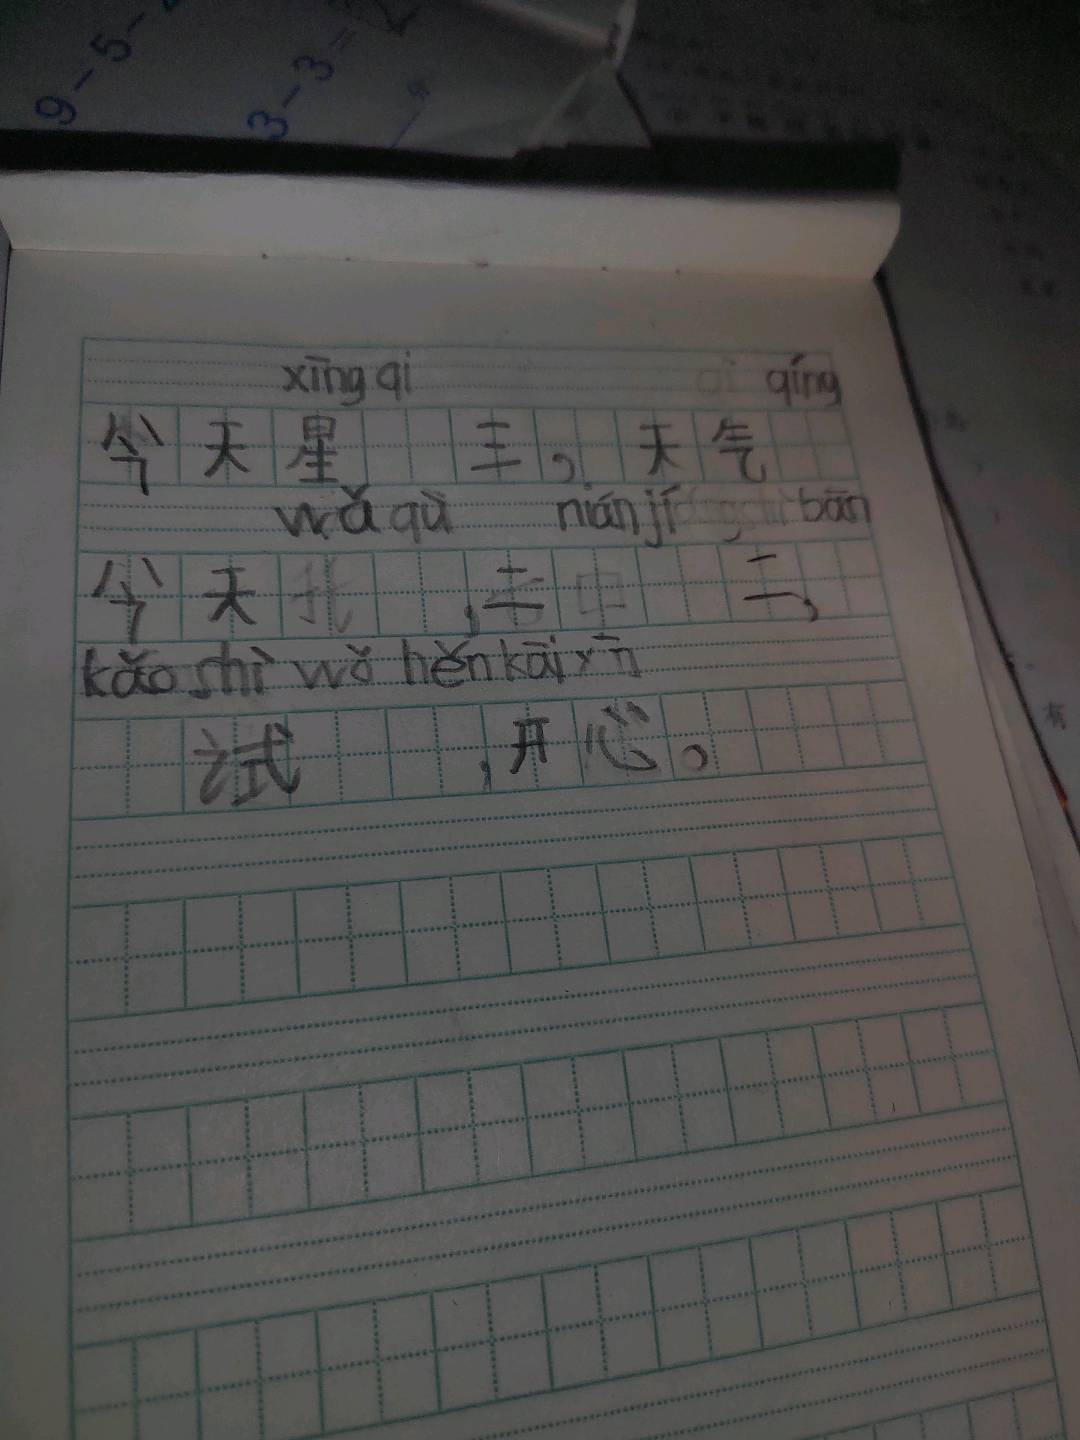 9-5-
3-3=
xīng qi qíng
今天星 三，天气
wǎ qù nián jí bān
今天 ，二 二，
kǎo shì wǒ hěn kāi xīn
试 ，开心。
有